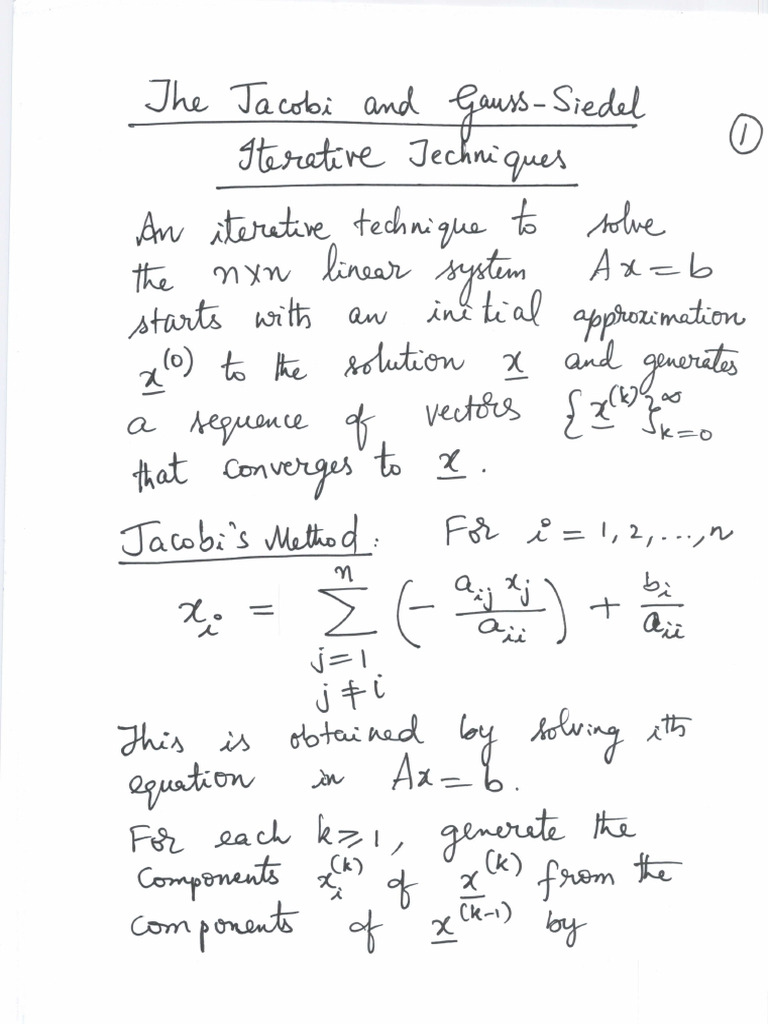 The Jacobi and Gauss-Siedel
Iterative Techniques
①
An iterative technique to solve
the n×n linear system Ax = b
starts with an initial approximation
x^(0) to the solution x and generates
a sequence of vectors {x^(k)}_{k=0}^∞
that converges to x.
Jacobi's Method: For i = 1, 2, ..., n
x_i = ∑_{j=1, j≠i}^{n} (- a_ij x_j / a_ii) + b_i / a_ii
This is obtained by solving ith
equation in Ax = b.
For each k ≥ 1, generate the
components x_i^(k) of x^(k) from the
components of x^(k-1) by